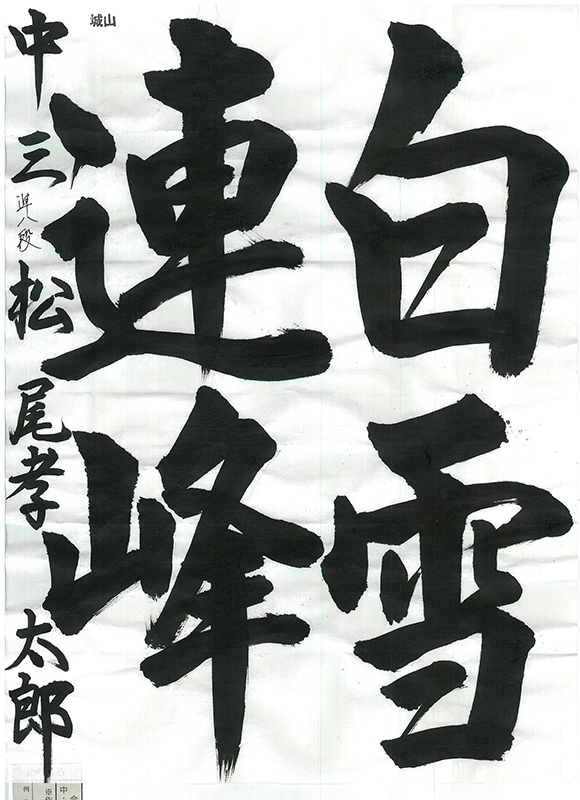 白雪
連峰
城山
中三 準八段 松尾孝太郎